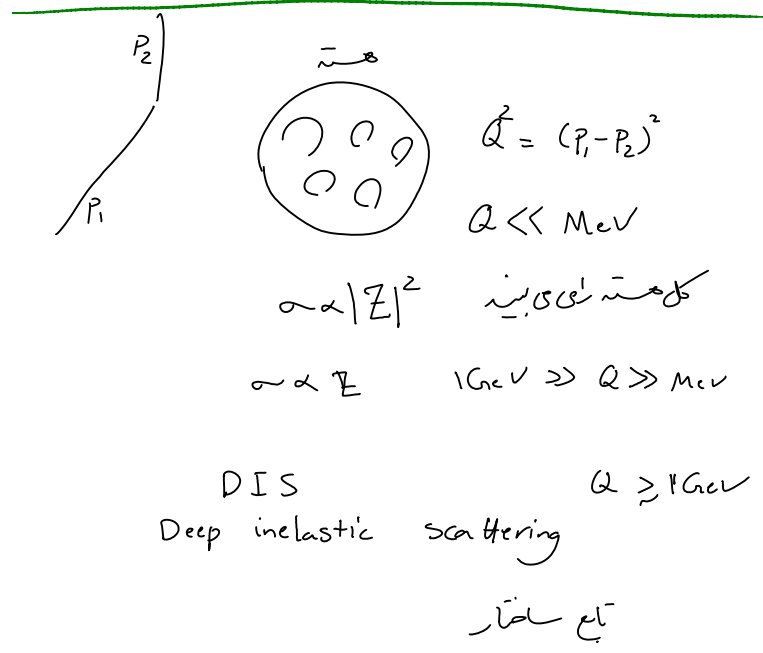 P₂
هسته
Q² = (P₁-P₂)²
P₁
Q << MeV
σ ∝ |Z|² کل هسته را می بیند
σ ∝ Z 1GeV >> Q >> MeV
DIS Q ≳ 1GeV
Deep inelastic scattering
تابع ساختار